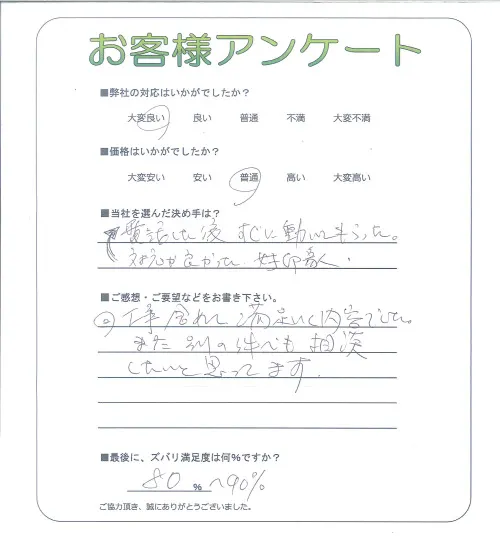 お客様アンケート
■弊社の対応はいかがでしたか？
大変良い 良い 普通 不満 大変不満
■価格はいかがでしたか？
大変安い 安い 普通 高い 大変高い
■当社を選んだ決め手は？
電話した後 すぐに動いてもらった。
対応が良かった 好印象
■ご感想・ご要望などをお書き下さい。
仕事 満足いく内容でした。
また別の件でも相談
したいと思ってます.
■最後に、ズバリ満足度は何%ですか？
80 % ～90%
ご協力頂き、誠にありがとうございました。